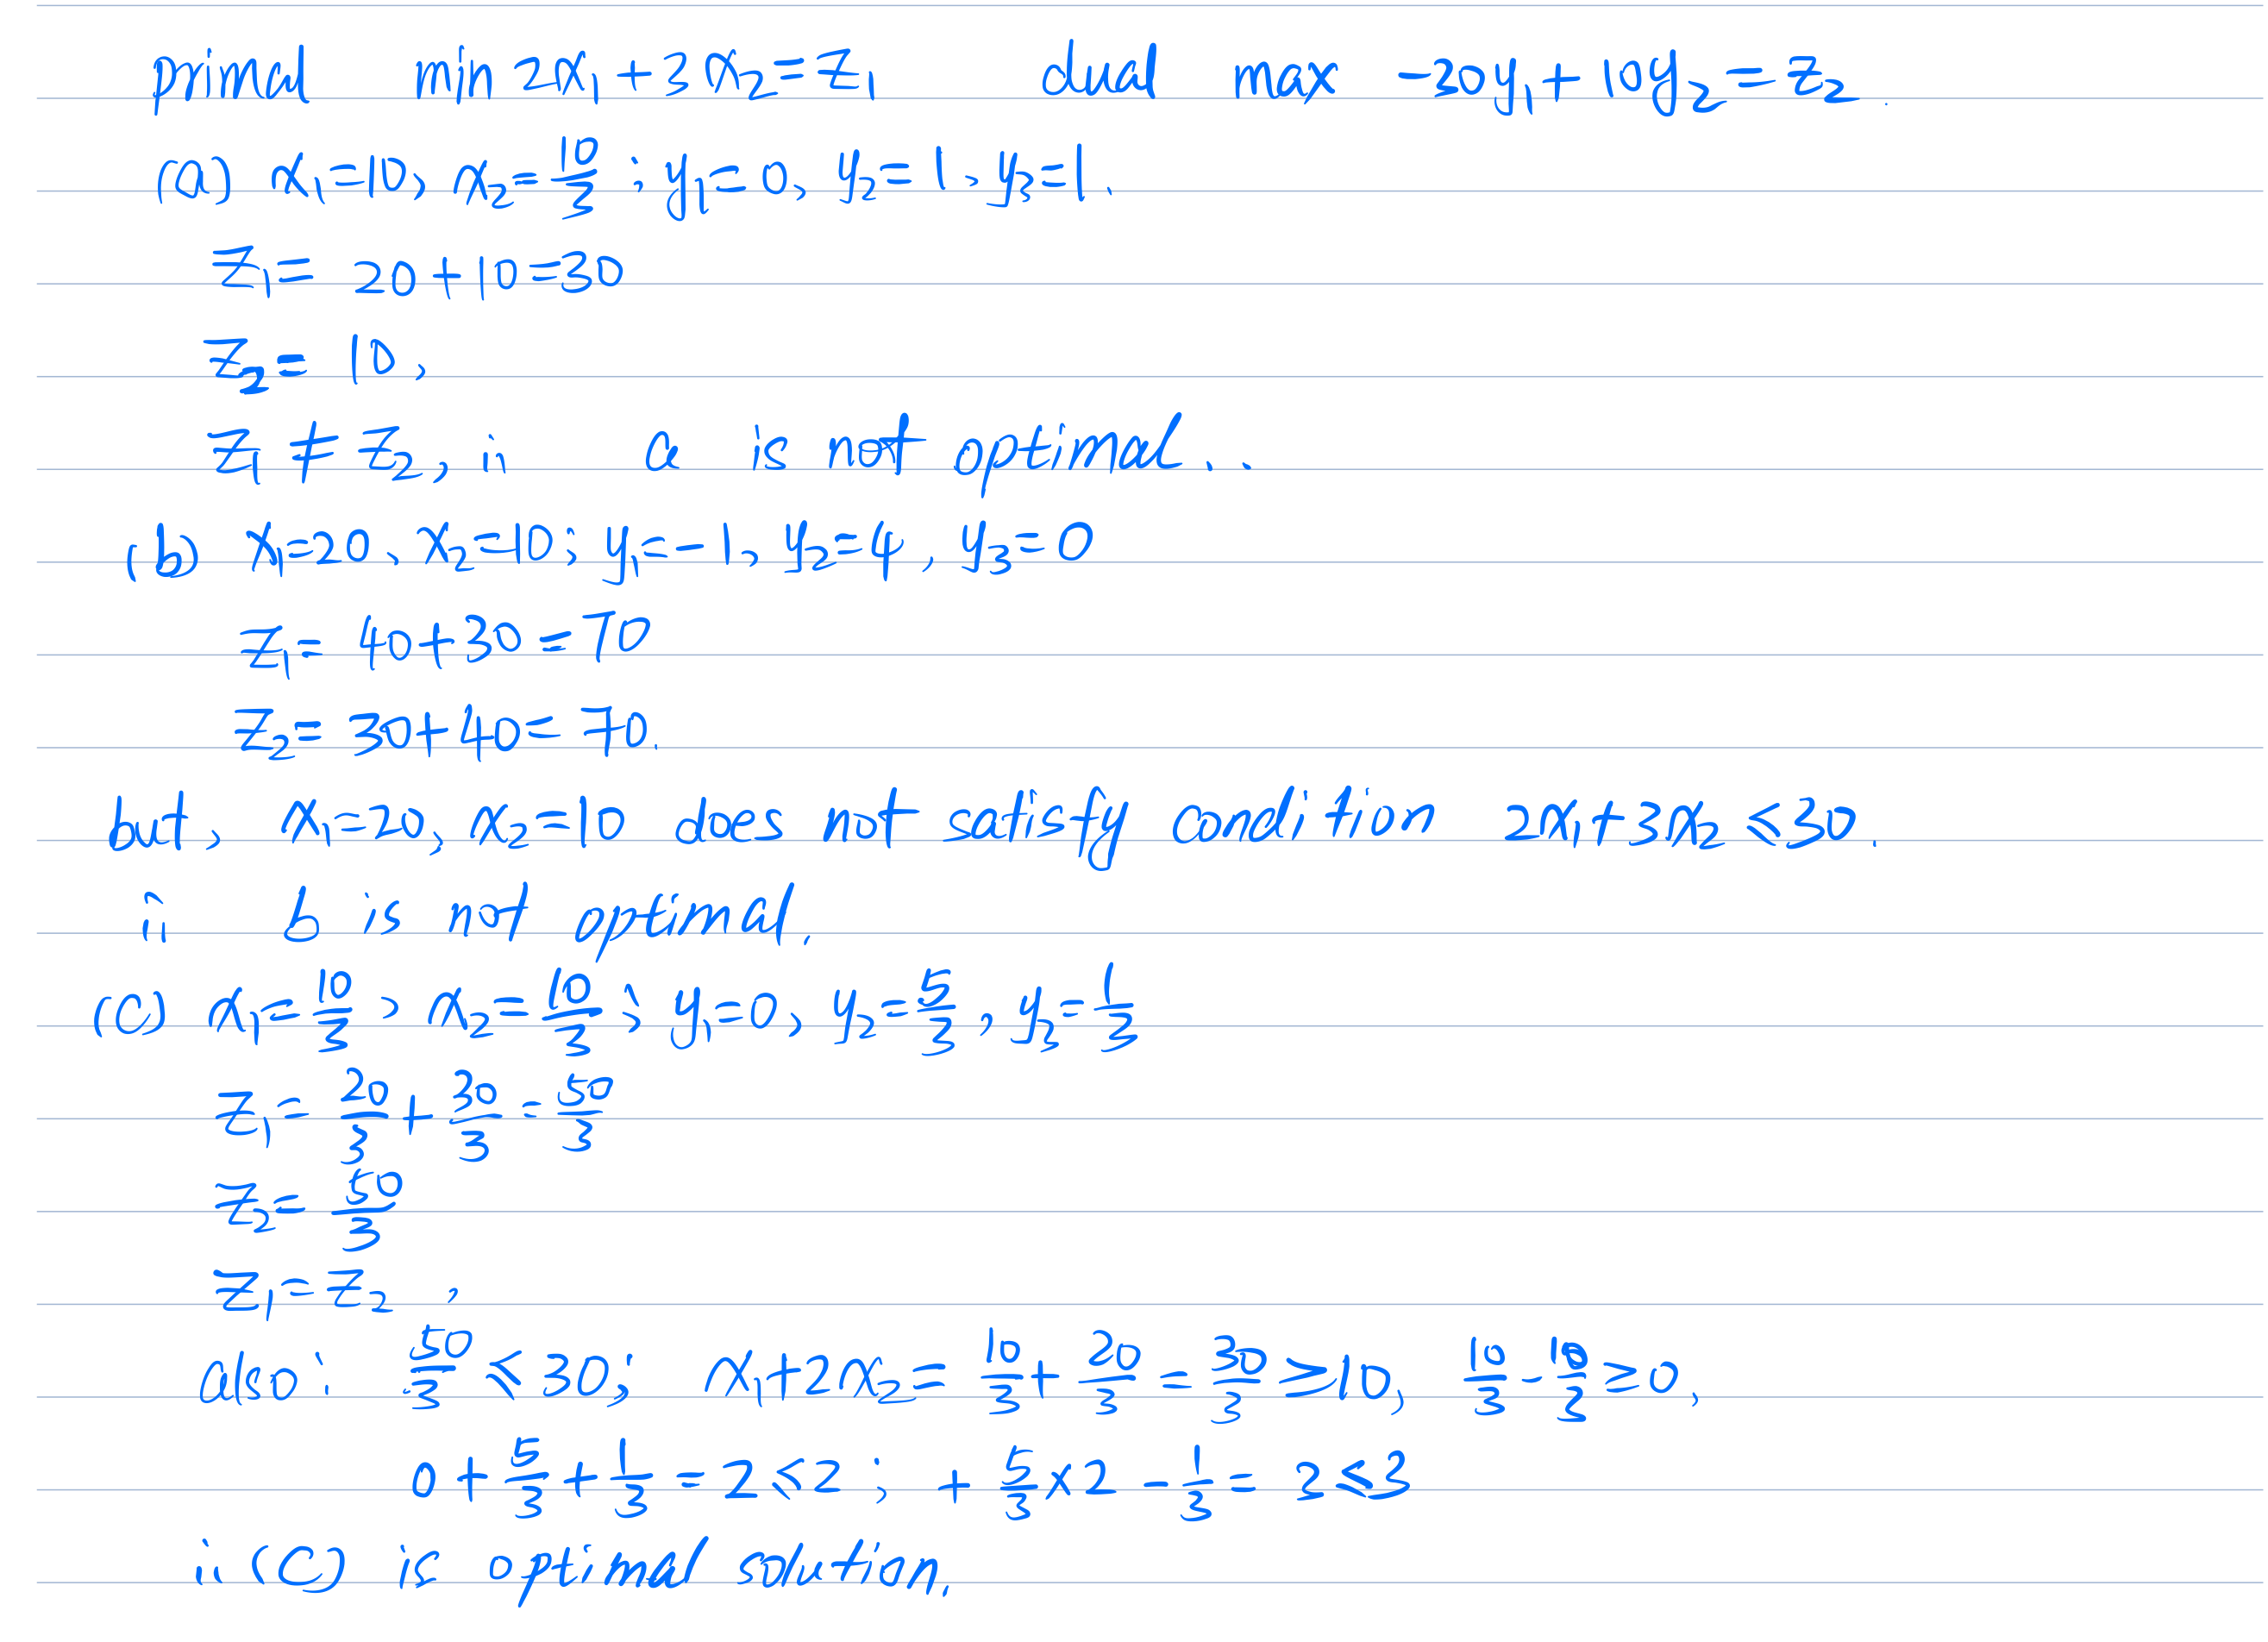 primal min 2x₁ + 3x₂ = z₁ dual max -30y₁ + 10y₂ = z₂.
(a) x₁=10, x₂=10/3; y₁=0, y₂=1, y₃=1.
z₁= 20+10=30
z₂= 10,
z₁ ≠ z₂, ∴ a is not optimal.
(b) x₁=20, x₂=10; y₁=-1, y₂=4, y₃=0
z₁= 40+30=70
z₂= 30+40=70.
but, x₁=20, x₂=10 does not satisfy condition 2x₁+3x₂≤30.
∴ b is not optimal.
(c) x₁=10/3, x₂=10/3; y₁=0, y₂=5/3, y₃=1/3
z₁= 20/3 + 30/3 = 50/3
z₂= 50/3
z₁=z₂,
also: 50/3 ≤ 30; x₁+2x₂= 10/3 + 20/3 = 30/3 ≥ 10, 10/3 - 10/3 ≥ 0,
0 + 5/3 + 1/3 = 2 ≤ 2; + 5/3 × 2 - 1/3 = 3 ≤ 3
∴ (c) is optimal solution.